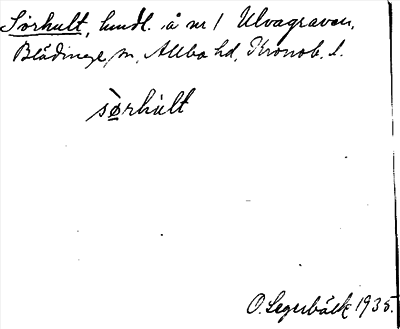 Sörhult, hmdl. å nr 1 Ulvagraven,
Blädinge, sn, Allbo hd, Kronob. l.
sòrhult
O. Legerbäck 1935.